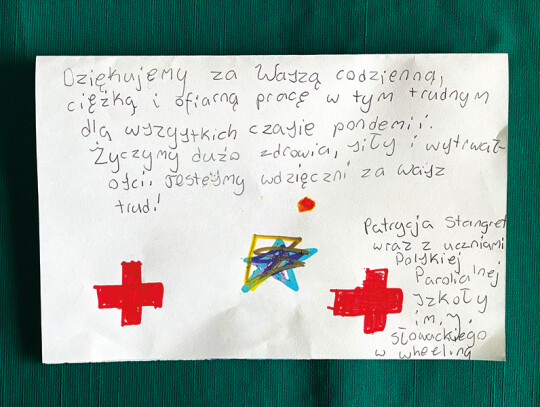 Dziękujemy za Waszą codzienną,
ciężką i ofiarną pracę w tym trudnym
dla wszystkich czasie pondemii.
Życzymy dużo zdrowia, siły i wytrwał-
ości. Jesteśmy wdzięczni za wasz
trud!
Patrycja Stangret
wraz z uczniami
Polskiej
Parafialnej
Szkoły
im. J.
Słowackiego
w Wheeling